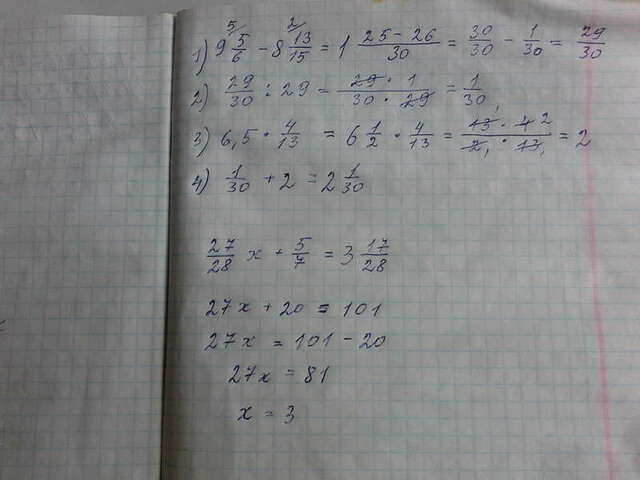 1) 9 5/6 − 8 13/15 = 1 (25 − 26)/30 = 30/30 − 1/30 = 29/30
2) 29/30 : 29 = (29 · 1)/(30 · 29) = 1/30
3) 6,5 · 4/13 = 6 1/2 · 4/13 = (13 · 4 2)/(2 1 · 13 1) = 2
4) 1/30 + 2 = 2 1/30
27/28 x + 5/7 = 3 17/28
27x + 20 = 101
27x = 101 − 20
27x = 81
x = 3